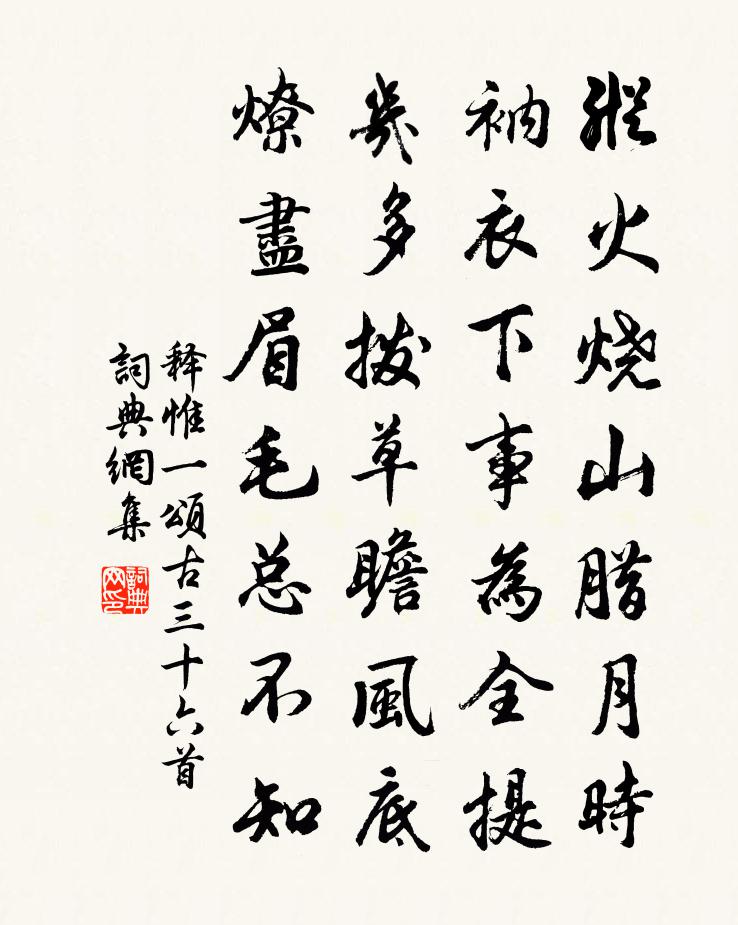 縱火燒山腊月時
衲衣下事為全提
幾多撥草瞻風底
燎盡眉毛总不知
释惟一頌古三十六首
詞典網集
詞典網印